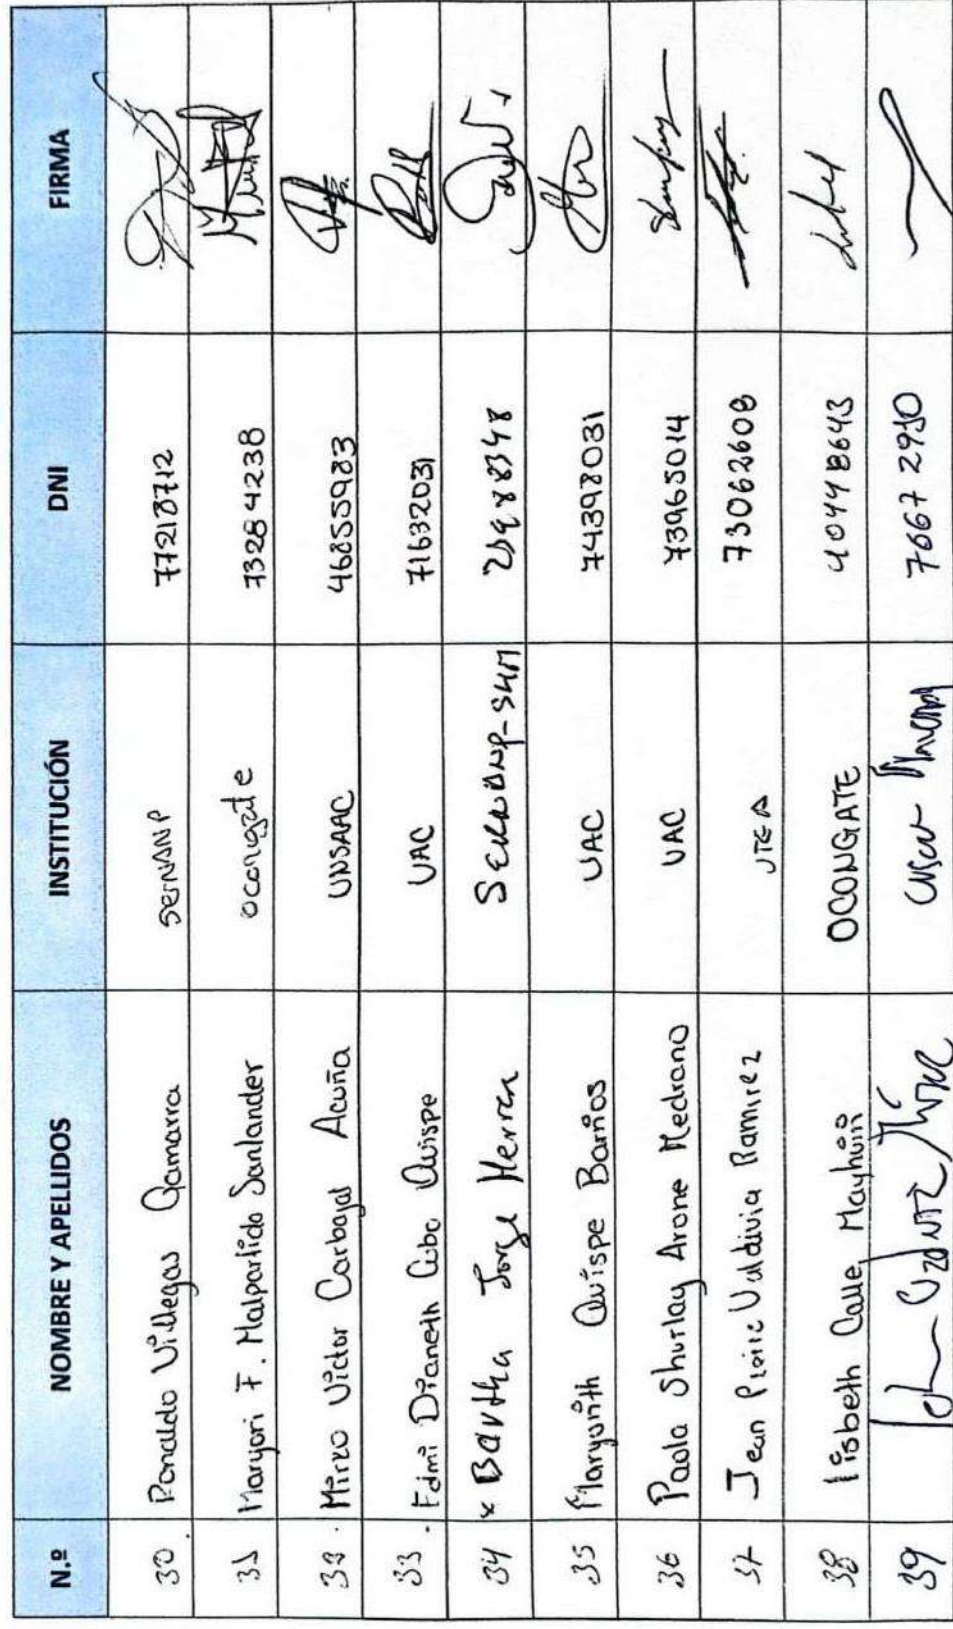 N.º NOMBRE Y APELLIDOS INSTITUCIÓN DNI FIRMA
30. Ronaldo Villegas Gamarra SERNANP 77218712
31 Maryori F. Malpartida Santander ocongate 73284238
32. Mirco Victor Carbajal Acuña UNSAAC 468559983
33. Edmi Dianeth Cubo Quispe UAC 71632031
34 x Bertha Jorge Herrera SERNANP-SHM
35 Maryunith Quispe Barrios UAC 74398031
36 Paola Shurlay Arone Medrano UAC 73965014
37 Jean Pierre Valdivia Ramirez UTEA 73062608
38 Lisbeth Calle Mayhuiri OCONGATE 40448643
39 Cusco 7667 2950